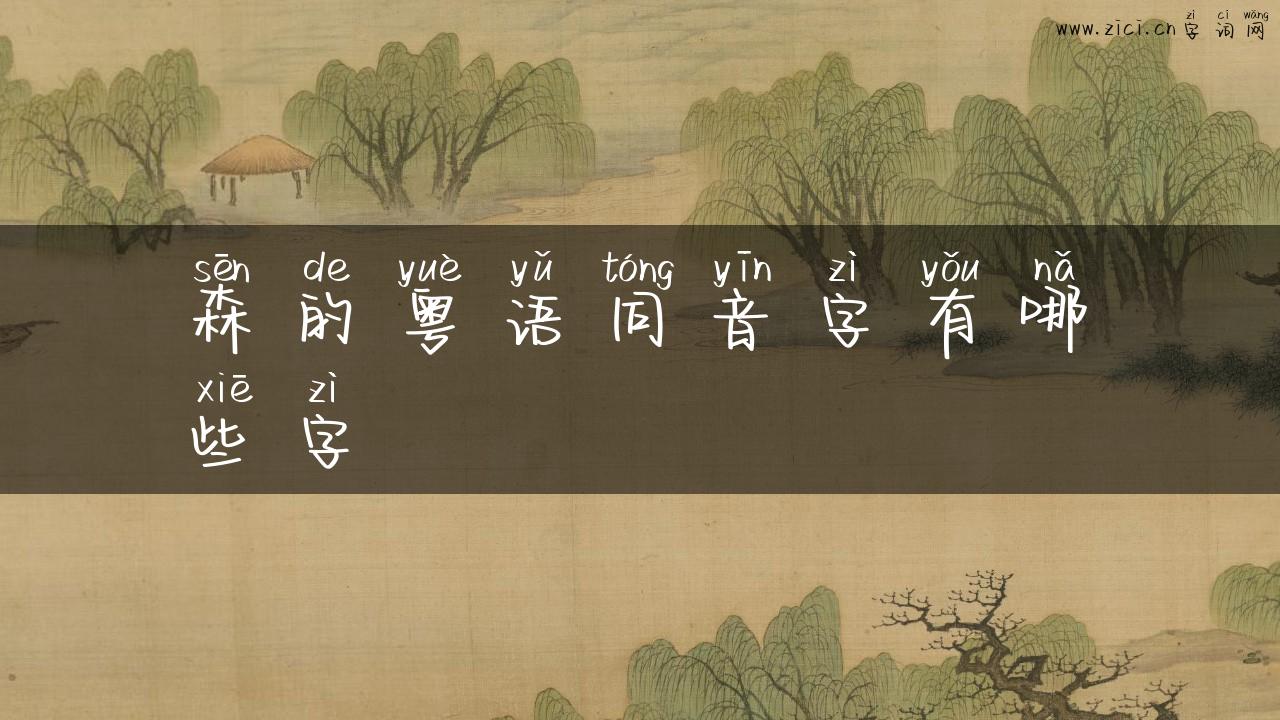 zì cí wǎng
www.zici.cn 字 词 网
sēn de yuè yǔ tóng yīn zì yǒu nǎ
森 的 粤 语 同 音 字 有 哪
xiē zì
些 字